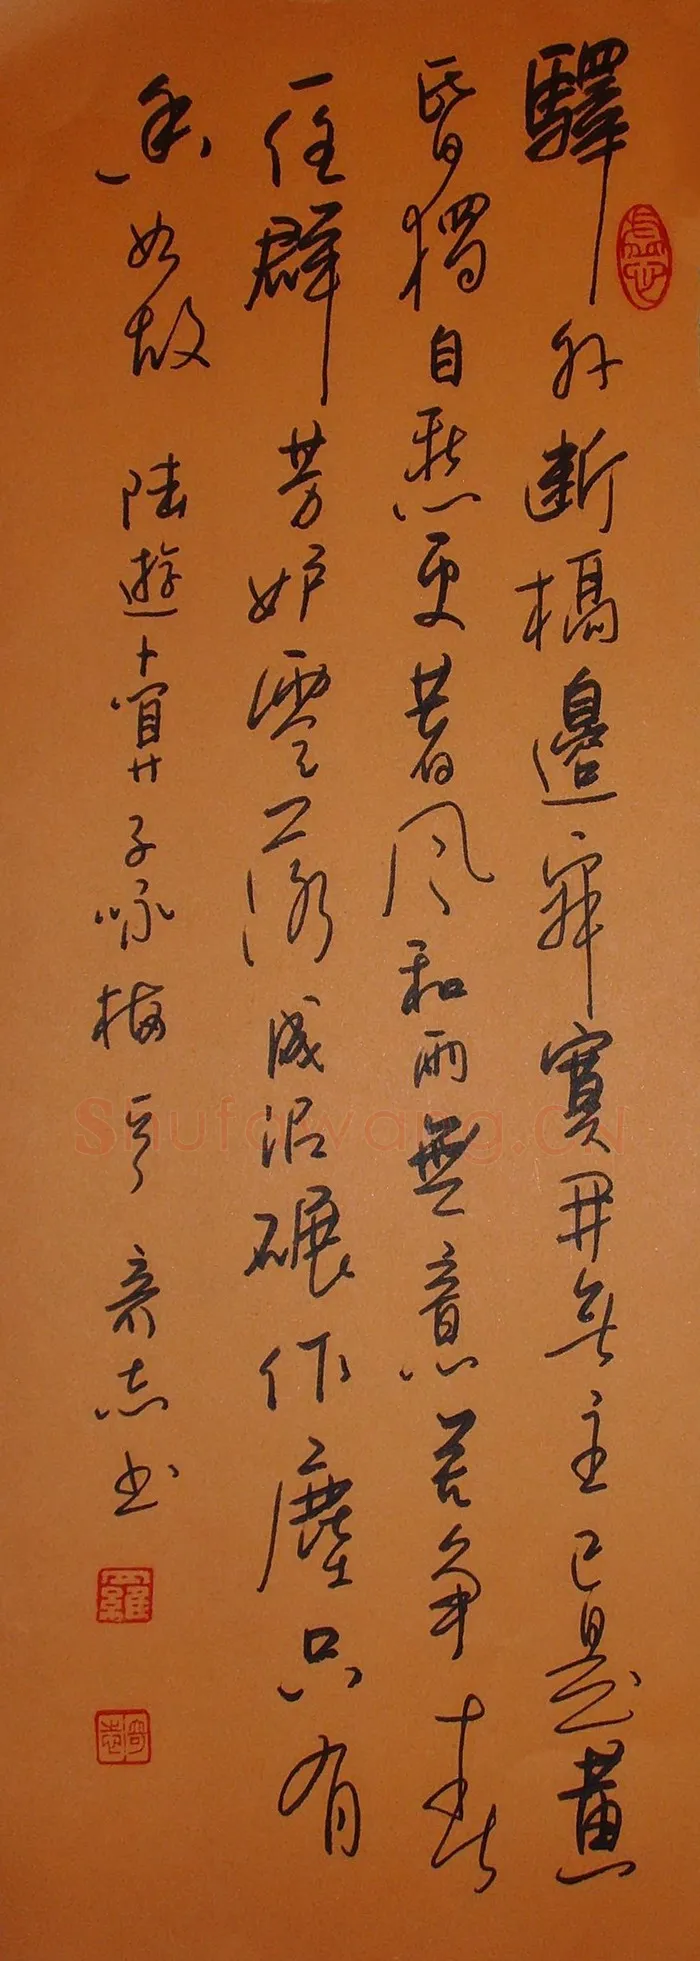 驛外斷橋邊寂寞開無主已是黃
昏獨自愁更著風和雨無意苦争春
一任群芳妒零落成泥碾作塵只有
香如故 陸遊卜算子咏梅 奇志书
羅
奇志
Shufawang.CN